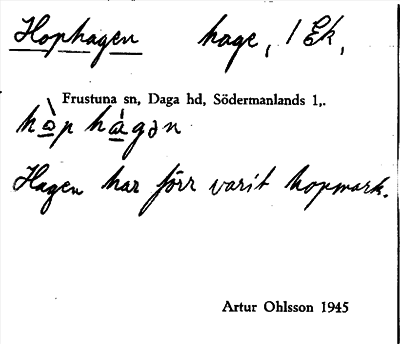 Hophagen hage, 1 Ek,
Frustuna sn, Daga hd, Södermanlands l,.
hòp hàgən
Hagen har förr varit hopmark.
Artur Ohlsson 1945